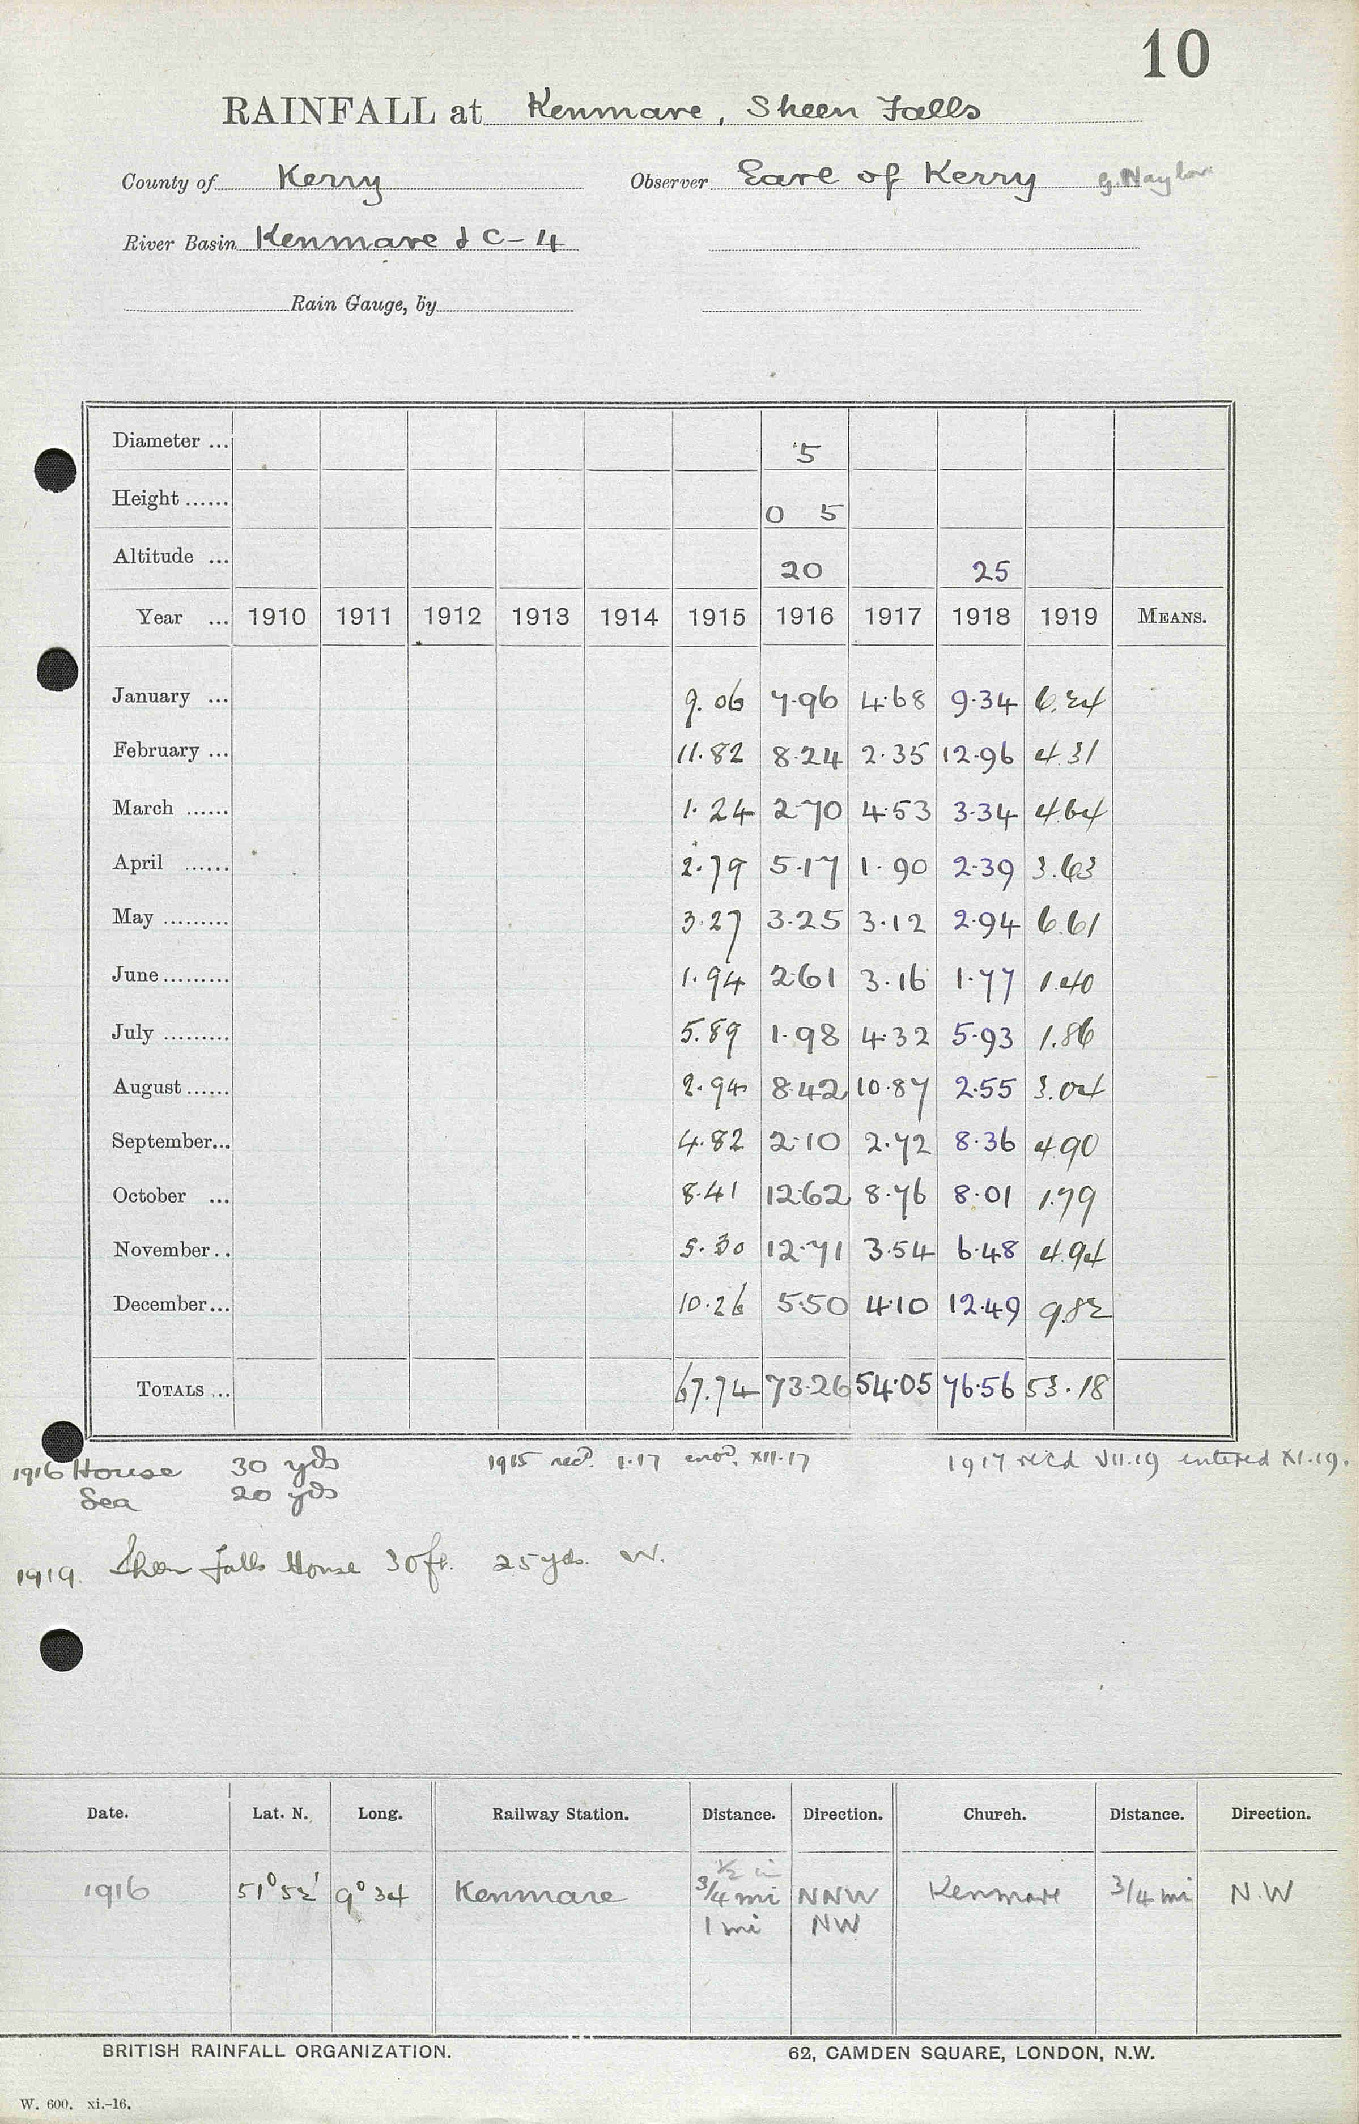 10
RAINFALL at Kenmare, Sheen Falls
County of Kerry Observer Earl of Kerry G. Naylor
River Basin Kenmare &c-4
Rain Gauge, by
Diameter ... 5
Height ...... 0 5
Altitude ... 20 25
Year ... 1910 1911 1912 1913 1914 1915 1916 1917 1918 1919 MEANS.
January ... 9.06 7.96 4.68 9.34 6.24
February ... 11.82 8.24 2.35 12.96 4.31
March ...... 1.24 2.70 4.53 3.34 4.64
April ...... 2.79 5.17 1.90 2.39 3.63
May ......... 3.27 3.25 3.12 2.94 6.61
June ......... 1.94 2.61 3.16 1.77 1.40
July ......... 5.89 1.98 4.32 5.93 1.86
August ...... 2.94 8.42 10.87 2.55 3.04
September... 4.82 2.10 2.72 8.36 4.90
October ... 8.41 12.62 8.76 8.01 1.79
November.. 5.30 12.71 3.54 6.48 4.94
December... 10.26 5.50 4.10 12.49 9.82
TOTALS ... 67.74 73.26 54.05 76.56 53.18
1916 House 30 yds 1915 recd. 1.17 entd. XII.17 1917 rec'd VII.19 entered XI.19.
Sea 20 yds
1919. Sheen Falls House 30ft. 25 yds. W.
Date. Lat. N. Long. Railway Station. Distance. Direction. Church. Distance. Direction.
1916 51° 52' 9° 34 Kenmare 3/4 mi NNW Kenmare 3/4 mi N.W
1 mi NW
BRITISH RAINFALL ORGANIZATION. 62, CAMDEN SQUARE, LONDON, N.W.
W. 600. xi.-16.